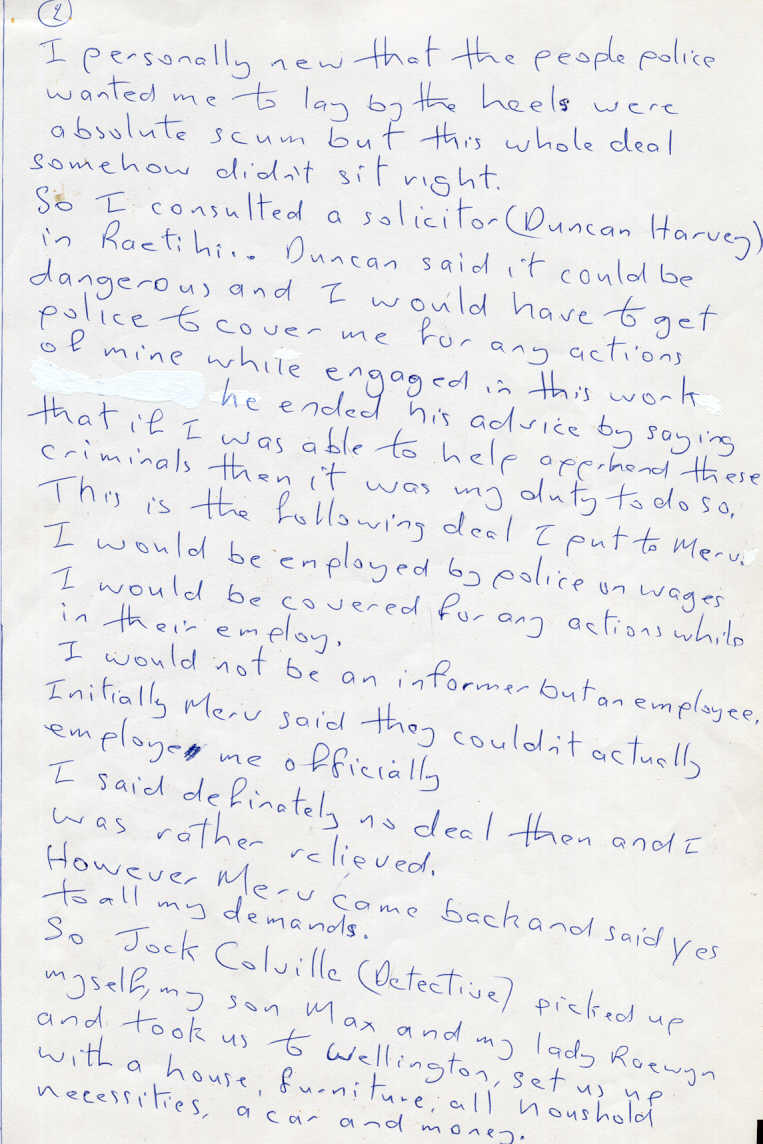 2
I personally new that the people police
wanted me to lay by the heels were
absolute scum but this whole deal
somehow didn't sit right.
So I consulted a solicitor (Duncan Harvey)
in Raetihi.. Duncan said it could be
dangerous and I would have to get
police to cover me for any actions
of mine while engaged in this work
he ended his advice by saying
that if I was able to help apprhend these
criminals then it was my duty to do so.
This is the following deal I put to Merv.
I would be employed by police on wages
I would be covered for any actions while
in their employ.
I would not be an informer but an employee.
Initially Merv said they couldn't actually
employe me officially
I said definately no deal then and I
was rather relieved.
However Merv came back and said yes
to all my demands.
So Jock Colville (Detective) picked up
myself, my son Max and my lady Raewyn
and took us to Wellington, set us up
with a house, furniture, all houshold
necessities, a car and money.